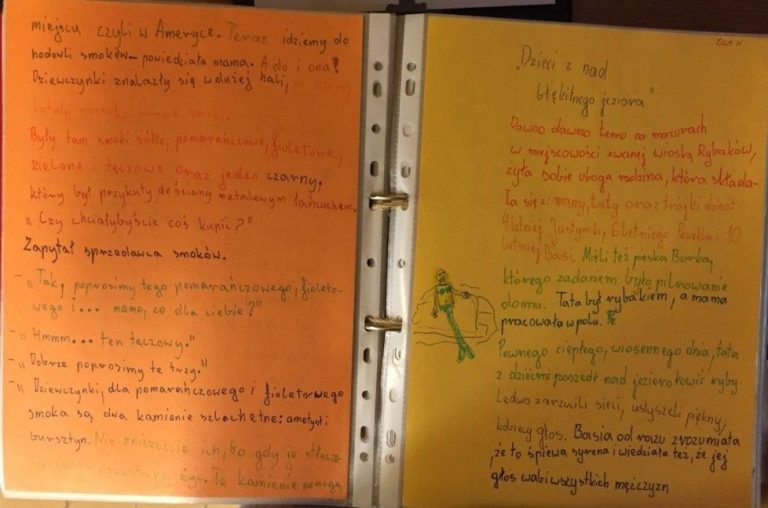 miejscu czyli w Ameryce. Teraz idziemy do
hodowli smoków – powiedziała mama. A oto i ona!
Dziewczynki znalazły się w dużej hali, po której
latały różnokolorowe smoki.
Były tam smoki żółte, pomarańczowe, fioletowe,
zielone i tęczowe oraz jeden czarny,
który był przykuty do ściany metalowym łańcuchem.
„Czy chciałybyście coś kupić?"
Zapytał sprzedawca smoków.
– „Tak, poprosimy tego pomarańczowego, fioleto-
wego i... mamo, co dla ciebie?"
– „Hmmm... ten tęczowy."
– „Dobrze poprosimy te trzy."
– „Dziewczynki, dla pomarańczowego i fioletowego
smoka są dwa kamienie szlachetne: ametyst i
bursztyn. Nie zniszczcie ich, bo gdy je stłucze-
cie smoki przestaną żyć. Te kamienie pomogą
OLA K
„Dzieci z nad
błękitnego jeziora"
Dawno dawno temu na mazurach
w miejscowości zwanej wioską Rybaków,
żyła sobie uboga rodzina, która składa-
ła się z: mamy, taty oraz trójki dzieci:
4letniej Justynki, 6letniego Pawełka i 10
letniej Basi. Mieli też pieska Burka,
którego zadaniem było pilnowanie
domu. Tata był rybakiem, a mama
pracowała w polu.
Pewnego ciepłego, wiosennego dnia, tata
z dziećmi poszedł nad jezioro łowić ryby.
Ledwo zarzucili sieci, usłyszeli piękny,
kobiecy głos. Basia od razu zrozumiała
,że to śpiewa syrena i wiedziała też, że jej
głos wabi wszystkich mężczyzn